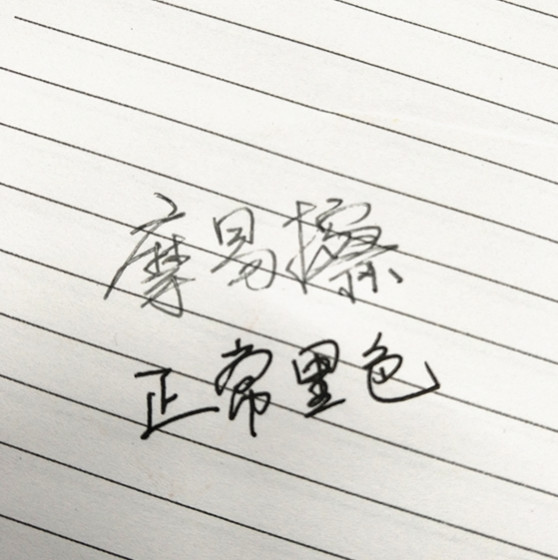 摩易擦
正常黑色